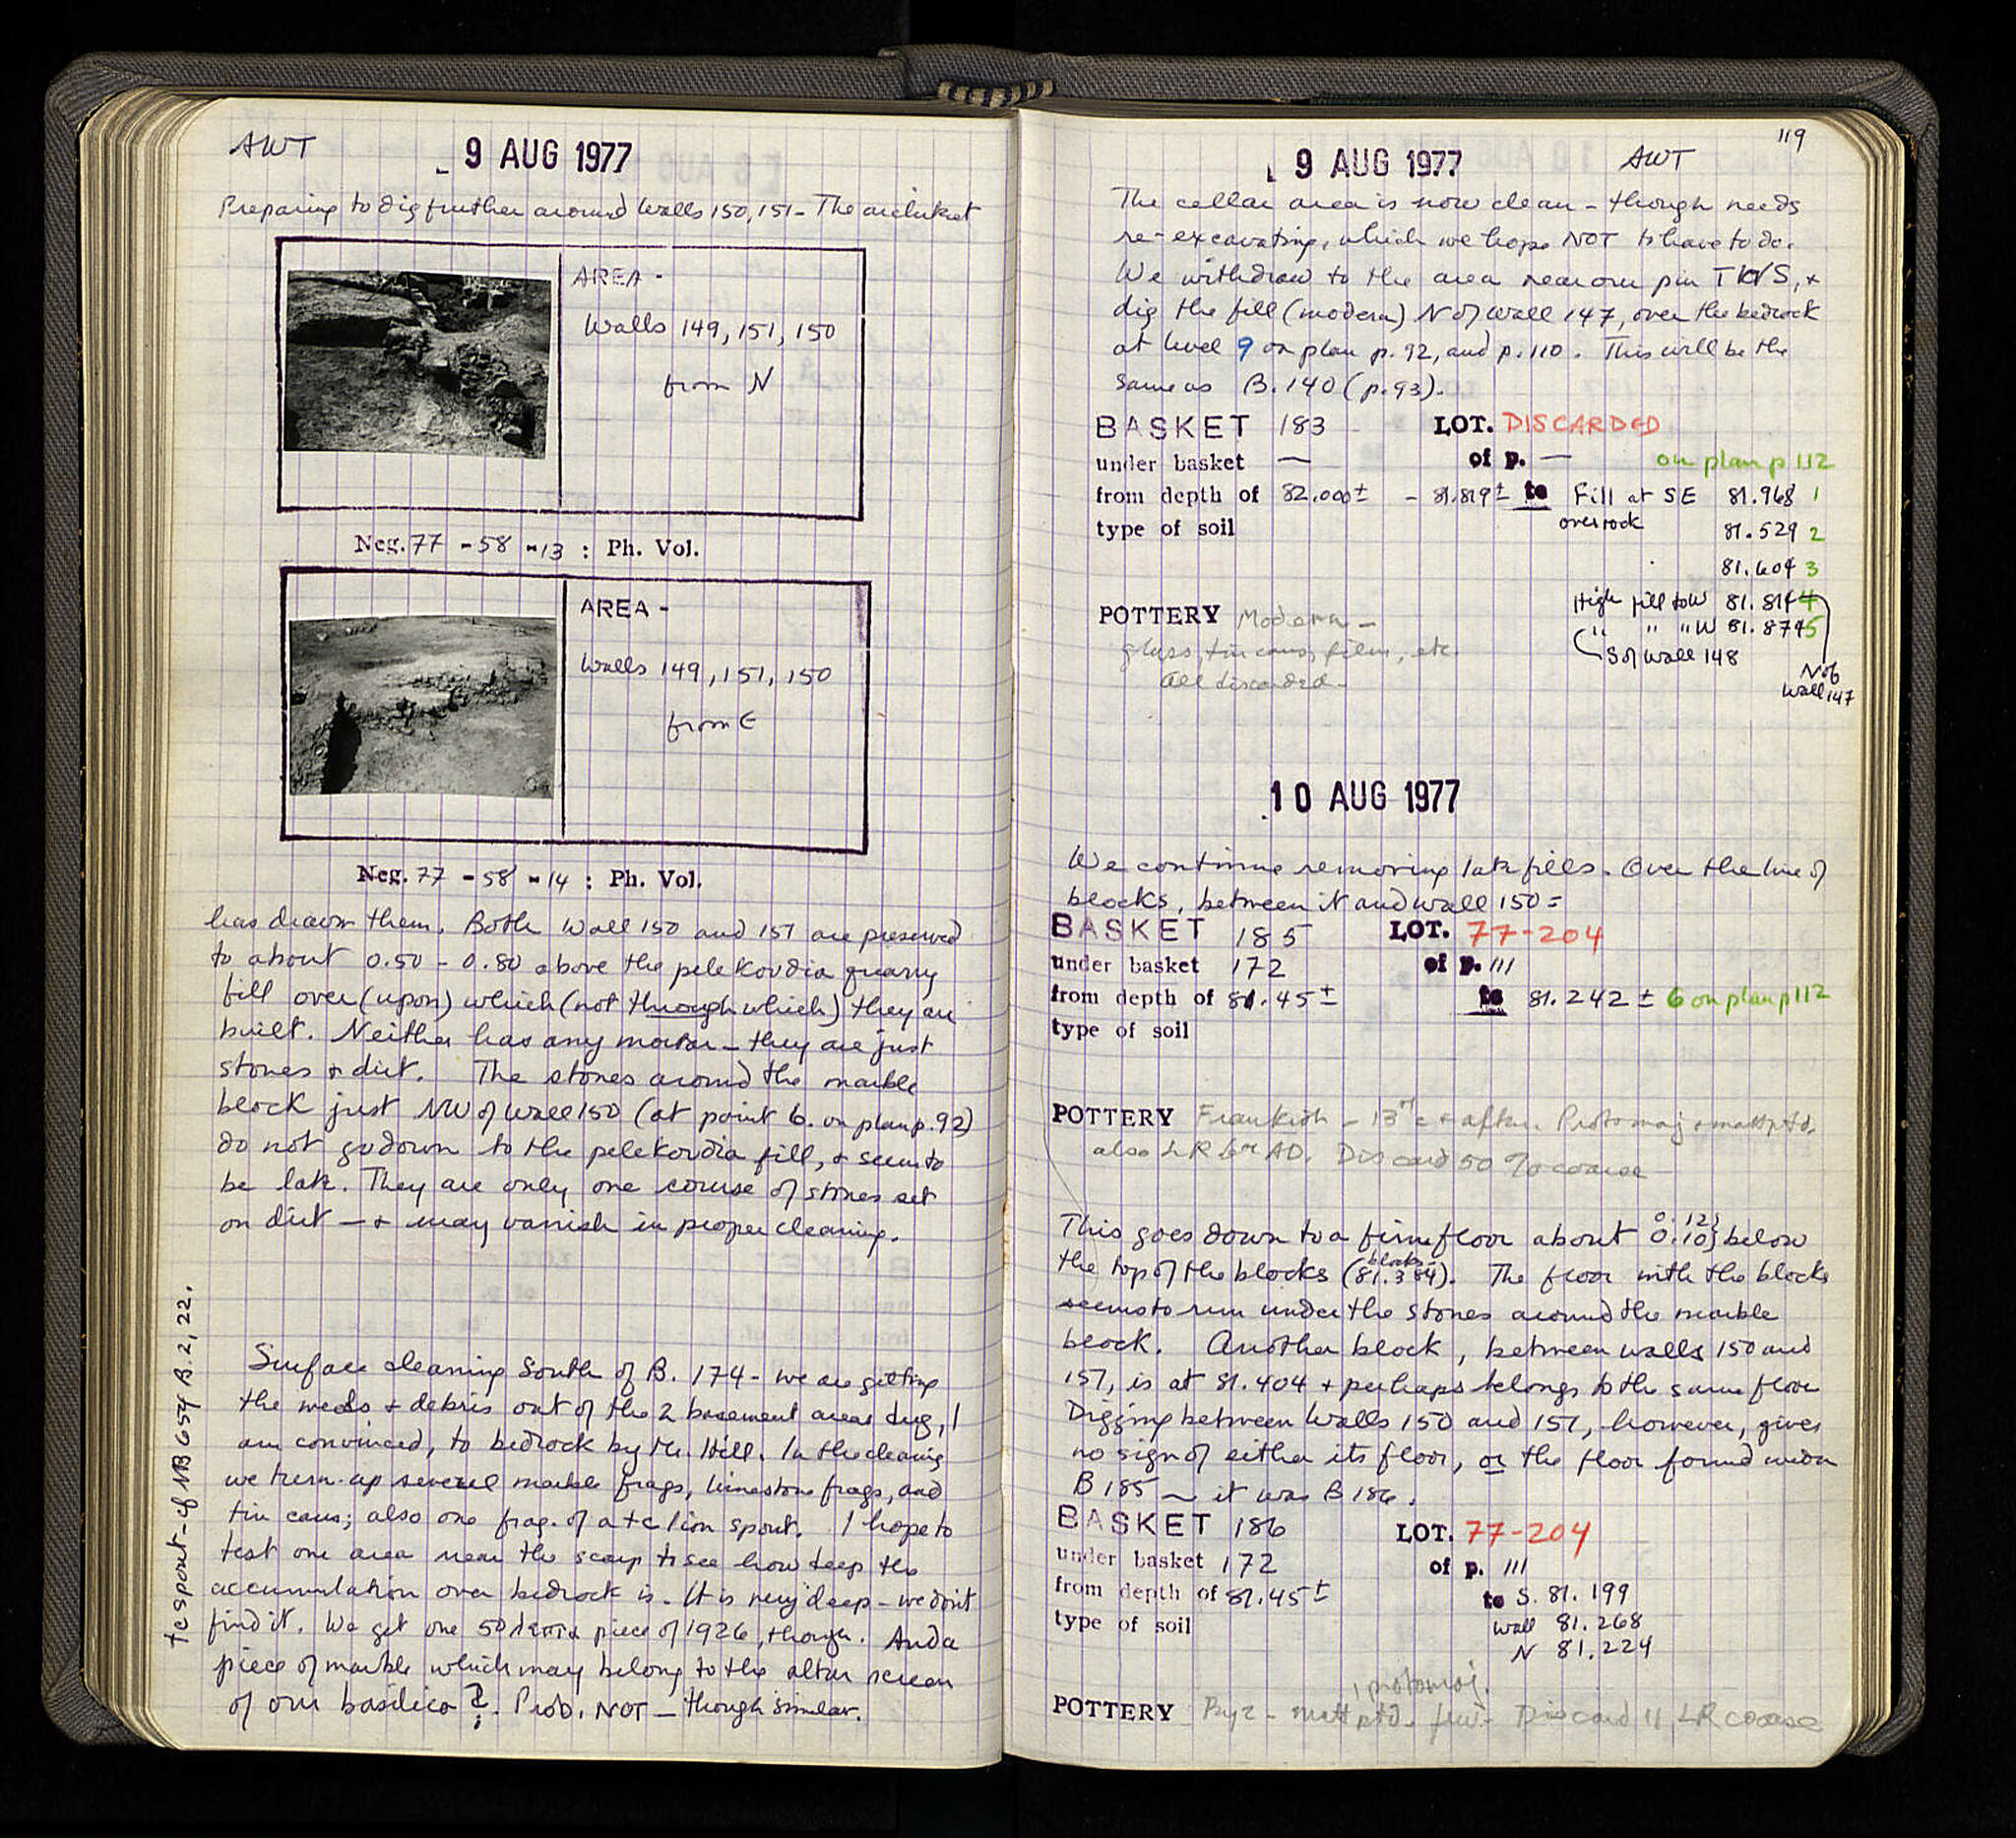 AWT
9 AUG 1977
Preparing to dig further around Walls 150, 151 - The architect
AREA -
Walls 149, 151, 150
from N
Neg. 77 - 58 - 13 : Ph. Vol.
AREA -
Walls 149, 151, 150
from E
Neg. 77 - 58 - 14 : Ph. Vol.
has drawn them. Both Wall 150 and 151 are preserved
to about 0.50 - 0.80 above the pelekoudia quarry
fill over (upon) which (not through which) they are
built. Neither has any mortar - they are just
stones & dirt. The stones around the marble
block just NW of Wall 150 (at point 6. on plan p. 92)
do not go down to the pelekoudia fill, & seem to
be late. They are only one course of stones set
on dirt - & may vanish in proper cleaning.
Surface cleaning South of B. 174 - we are getting
the weeds & debris out of the 2 basement areas dug, I
am convinced, to bedrock by Mr. Hill. In the cleaning
we turn up several marble frags, limestone frags, and
tin cans; also one frag. of a tc lion spout. I hope to
test one area near the scarp to see how deep the
accumulation over bedrock is. It is very deep - we don't
find it. We get one 50 λεπτα piece of 1926, though. And a
piece of marble which may belong to the altar screen
of our basilica?. Prob. NOT - though similar.
tc spout - cf NB 654 B. 2, 22.
119
9 AUG 1977
AWT
The cellar area is now clean - though needs
re-excavating, which we hope NOT to have to do.
We withdraw to the area near our pin TWS, &
dig the fill (modern) N of wall 147, over the bedrock
at level 9 on plan p. 92, and p. 110. This will be the
same as B. 140 (p. 93).
BASKET 183 LOT. DISCARDED
under basket — of p. — on plan p 112
from depth of 82.000± - 81.819± to Fill at SE 81.968 1
type of soil over rock 81.529 2
81.604 3
High fill to W 81.814 4
" " " W 81.874 5
S of Wall 148
N of
Wall 147
POTTERY Modern -
glass, tin cans, film, etc.
All discarded -
10 AUG 1977
We continue removing late fills. Over the line of
blocks, between it and wall 150 =
BASKET 185 LOT. 77-204
under basket 172 of p. 111
from depth of 81.45± to 81.242 ± 6 on plan p 112
type of soil
POTTERY Frankish - 13th c & after. Protomaj & matt ptd,
also LR 6th AD. Discard 50 % coarse
This goes down to a firm floor about 0.12 0.10} below
the top of the blocks (blocks = 81.384). The floor with the blocks
seems to run under the stones around the marble
block. Another block, between walls 150 and
151, is at 81.404 & perhaps belongs to the same floor
Digging between Walls 150 and 151, however, gives
no sign of either its floor, or the floor found under
B 185 - it was B 186.
BASKET 186 LOT. 77-204
under basket 172 of p. 111
from depth of 81.45± to S. 81.199
type of soil wall 81.268
N 81.224
, protomaj.
POTTERY Byz - matt ptd. few - Discard 11 LR coarse